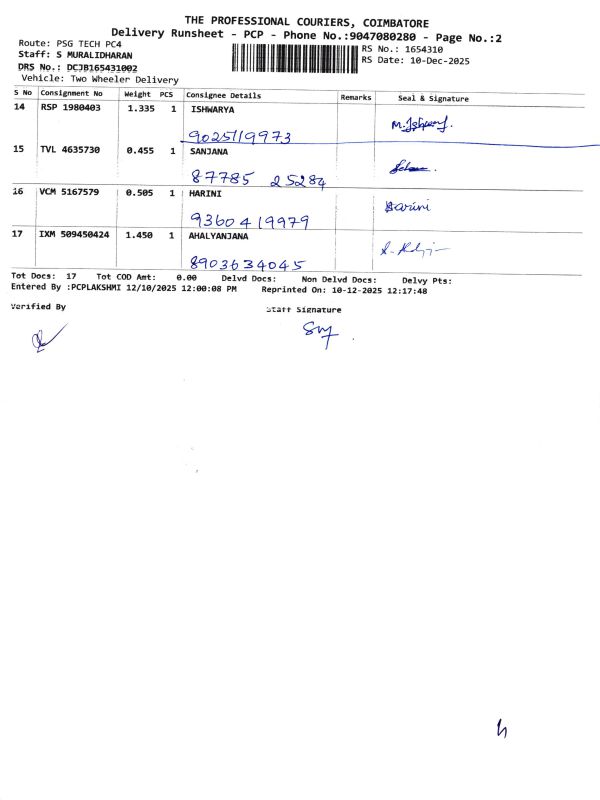 THE PROFESSIONAL COURIERS, COIMBATORE
Delivery Runsheet - PCP - Phone No.:9047080280 - Page No.:2
Route: PSG TECH PC4
Staff: S MURALIDHARAN
DRS No.: DCJB165431002
Vehicle: Two Wheeler Delivery
RS No.: 1654310
RS Date: 10-Dec-2025
S No Consignment No Weight PCS Consignee Details Remarks Seal & Signature
14 RSP 1980403 1.335 1 ISHWARYA
9025119973 M.Ishwary.
15 TVL 4635730 0.455 1 SANJANA
87785 25284
16 VCM 5167579 0.505 1 HARINI
9360419979 Harini
17 IXM 509450424 1.450 1 AHALYANJANA
8903634045
Tot Docs: 17 Tot COD Amt: 0.00 Delvd Docs: Non Delvd Docs: Delvy Pts:
Entered By :PCPLAKSHMI 12/10/2025 12:00:08 PM Reprinted On: 10-12-2025 12:17:48
Verified By Staff Signature